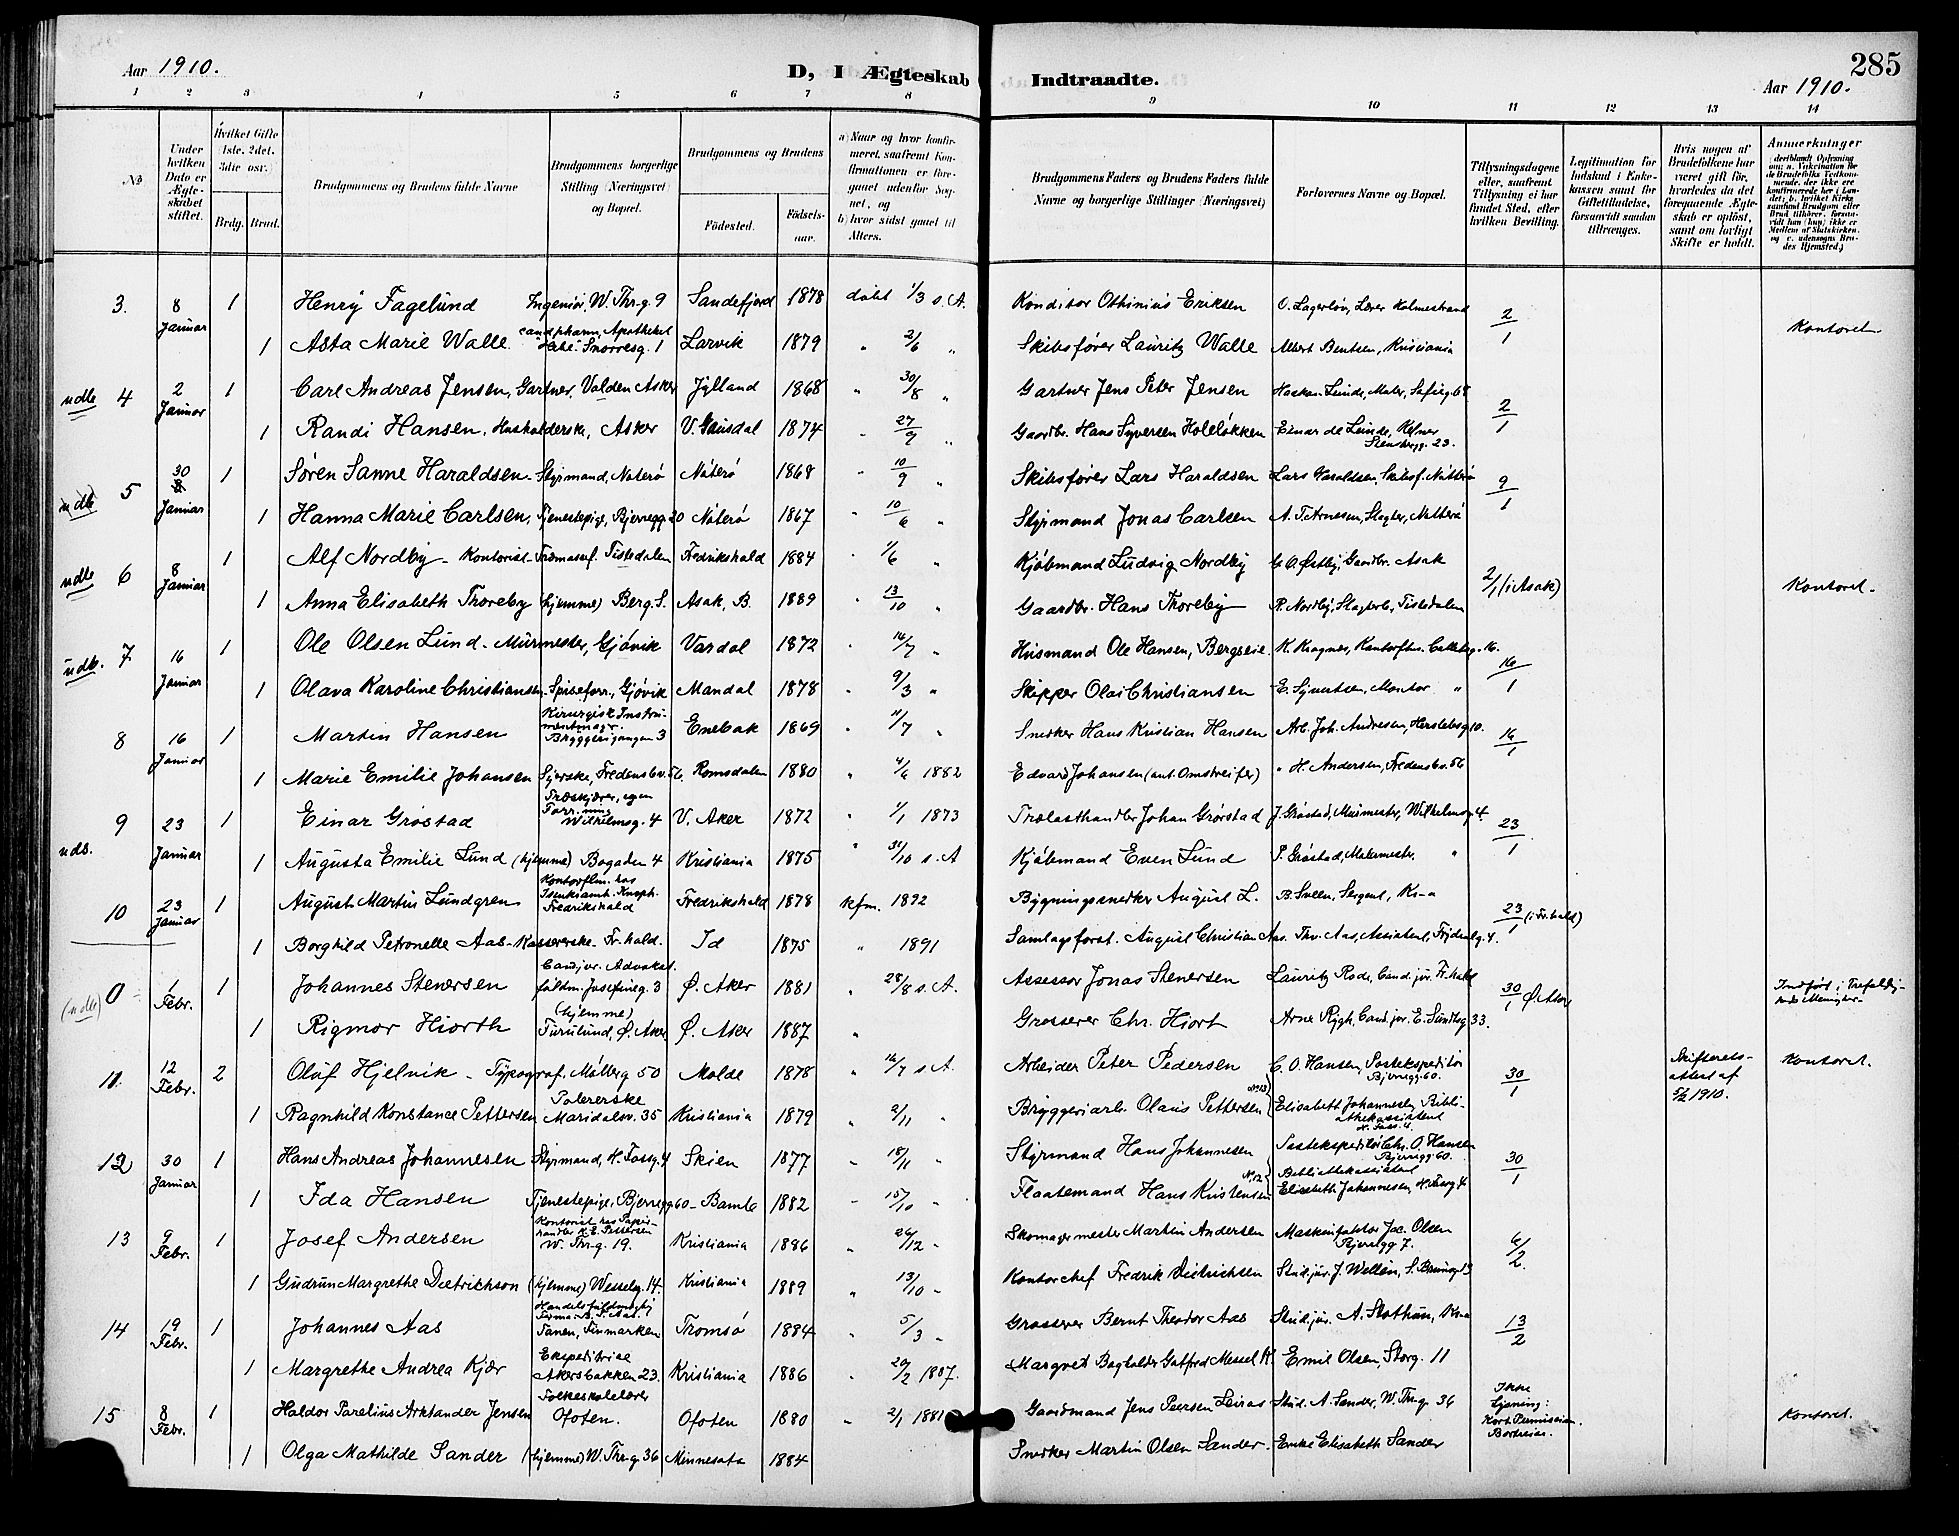 Aar 1910.
D, I Ægteskab Indtraadte.
285
Aar 1910.
1 2 3 4 5 6 7 8 9 10 11 12 13 14
№
Under hvilken Dato er Ægteskabet stiftet.
Hvilket Gifte (1ste, 2det, 3die osv.)
Brdg. Brud.
Brudgommens og Brudens fulde Navne
Brudgommens borgerlige Stilling (Næringsvei) og Bopæl.
Brudgommens og Brudens
Fødested. Fødselsaar.
a) Naar og hvor konfirmeret, saafremt Konfirmationen er foregaaet udenfor Sognet, og
b) hvor sidst gaaet til Alters.
Brudgommens Faders og Brudens Faders fulde Navne og borgerlige Stillinger (Næringsvei)
Forlovernes Navne og Bopæl.
Tillysningsdagene eller, saafremt Tillysning ei har fundet Sted, efter hvilken Bevilling.
Legitimation for Indskud i Enkekassen samt for Giftetilladelse, forsaavidt saadan tiltrænges.
Hvis nogen af Brudefolkene har været gift før, hvorledes da det foregaaende Ægteskab er opløst, samt om lovligt Skifte er holdt.
Anmerkninger
3. 8 Januar 1 Henry Fagelund Ingeniør, W. Thr.g. 9 Sandefjord 1878 døbt 1/3 s.A. Konditor Othinius Eriksen O. Lagerløv, Lærer Holmestrand 2/1
1 Asta Marie Walle cand. pharm. Apotheket Snorresg. 1 Larvik 1879 " 2/6 " Skibsfører Lauritz Walle Albert Bentsen, Kristiania Kontoret
udb 4 2 Januar 1 Carl Andreas Jensen, Gartner, Valden Asker Jylland 1868 " 30/8 " Gartner Jens Peter Jensen Haakon Lunde, Maler, Sofieg. 68 2/1
1 Randi Hansen, Husholderske, Asker V. Gausdal 1874 " 27/9 " Gaardbr. Hans Syversen Holeløkken Einar de Lunde, Kelner Stensbergg. 23.
udb 5 30 Januar 1 Søren Sanne Haraldsen - Styrmand, Nøterø Nøterø 1868 " 10/9 " Skibsfører Lars Haraldsen Lars Haraldsen, Skibsf. Nøtterø 9/1
1 Hanna Marie Carlsen, Tjenestepige, Bjerregg. 20 Nøterø 1867 " 10/6 " Styrmand Jonas Carlsen A. T. Arnesen, Slagter, Nøtterø
udb 6 8 Januar 1 Alf Nordby - Kontorist Træmassef. Tistedalen Fredrikshald 1884 " 1/6 " Kjøbmand Ludvig Nordby C. O. Østby, Gaardbr. Asak 2/1 (i Asak)
1 Anna Elisabeth Thoreby (hjemme) Berg. S. Asak, B. 1889 " 13/10 " Gaardbr. Hans Thoreby R. Nordby, Slagterb., Tistedalen Kontoret.
udb. 7 16 Januar 1 Ole Olsen Lund - Murmester, Gjøvik Vardal 1872 " 14/7 " Husmand Ole Hansen, Bergseie K. Kragnes, Kontorftm. 16. 16/1
1 Olava Karoline Christiansen Spiseforr., Gjøvik Mandal 1878 " 9/3 " Skipper Olai Christiansen E. Sjuutsen, Montør "
8 16 Januar 1 Martin Hansen Kirurgisk Instrumentmagr. Bryggerigangen 3 Enebak 1869 " 11/7 " Snedker Hans Kristian Hansen Arb. Joh. Andresen, Herslebsg. 10. 16/1
1 Marie Emilie Johansen Syerske, Fredensbv. 56. Romsdalen 1880 " 4/4 1882 Edvard Johansen (ant. Omstreifer) " H. Andersen, Fredensbv. 56
9 23 Januar 1 Einar Grøstad Træskjærer, egen Forr.ning Wilhelmsg. 4 V. Aker 1872 " 1/1 1873 Trælasthandler Johan Grøstad J. Grøstad, Murmester, Wilhelmsg. 4. 23/1
uds. 1 Augusta Emilie Lund (hjemme) Bogaden 4 Kristiania 1875 " 31/10 s.A Kjøbmand Even Lund P. Grøstad, Malermester. "
10 23 Januar 1 August Martin Lundgren Kontorflm. hos Fredrikshald Fredrikshald 1878 kfm. 1892 Bygningssnedker August L. B. Svllen, Sergent, Kr-a 23/1 (i Fr.hald)
1 Borghild Petronelle Aas - Kassererske - Fr.hald. Id 1875 " 1891 Samlagsforst. August Christian Aas. Thv. Aas, Assistent, 4.
(udb) 0 1 Febr. 1 Johannes Stenersen Cand. jur. Advokat fuldm. Josefineg. 3 Ø. Aker 1881 " 28/8 s.A. Assessor Jonas Stenersen Lauritz Rode, Cand. jur. Fr.hald 30/1 Ø. Aker Indført i Trefoldighedsmenigh.
1 Rigmor Hiorth (hjemme) Furulund, Ø. Aker Ø. Aker 1887 " Grosserer Chr. Hiort Arne Rygh, Cand. jur. E. Sundtsg. 33.
11. 12 Febr. 2 Oluf Hjelvik - Typograf. Møllerg 50 Molde 1878 " 14/7 s.A. Arbeider Peter Pedersen C. O. Hansen, Postekspeditør Bjerregg. 60. 30/1 Skifteretsattest af 5/2 1910. Kontoret.
1 Ragnhild Konstance Pettersen Polererske Maridalsv. 35 Kristiania 1879 " 2/11 " Bryggeriarb. Olaus Pettersen Elisabeth Johannesen, Bibliothekassistent N. Foss. 4.
12 30 Januar 1 Hans Andreas Johannesen Styrmand, N. Fossg. 4 Skien 1877 " 18/11 " Styrmand Hans Johannesen Postekspeditør Chr. O. Hansen Bjerregg. 60. 30/1
1 Ida Hansen Tjenestepige, Bjerregg 60 - Bamle 1882 " 15/10 " Flaatemand Hans Kristensen Bibliothekassistent Elisabeth Johannesen, N. Fossg 4
13 9 Febr. 1 Josef Andersen Kontorist hos Papirhandler K. E. Pettersen W. Thr.g. 19. Kristiania 1886 " 26/12 " Skomagermester Martin Andersen Maskinfaktor Joc. Olsen Bjerregg 7. 6/2
1 Gudrun Margrethe Dietrichson (hjemme) Wesselsg. 14. Kristiania 1889 " 13/10 " Kontorchef Fredrik Dietrichsen Stud. jur. J. Wellén, S. Brunsg 13
14 19 Febr. 1 Johannes Aas Handelsfuldmægtig Tanen, Finmarken Tromsø 1884 " 5/3 " Grosserer Bernt Theodor Aas Stud. jur. A. Stothun, Kr-a 13/2
1 Margrethe Andrea Kjær Ekspeditrice Akersbakken 23. Kristiania 1886 " 20/2 1887. Margvet Bogholder Gotfred Messel K. Emil Olsen, Storg. 11
15 8 Febr. 1 Haldor Parelius Arktander Jensen Folkeskolelærer Ofoten. Ofoten 1880 " 2/1 1881 Gaardmand Jens Peersen Leiros Stud. A. Sander, W. Thr.g. 36 Ikke Lysning: Kort Permission. Bortreise. Kontoret.
1 Olga Mathilde Sander (hjemme) W. Thr.g 36 Minnesota 1884 Snedker Martin Olsen Sander. Enke Elisabeth Sander